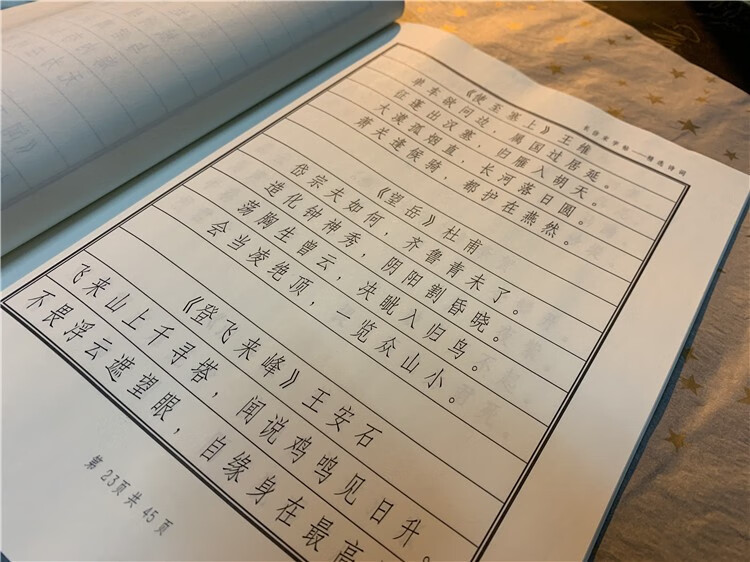 《使至塞上》王维
单车欲问边，属国过居延。
征蓬出汉塞，归雁入胡天。
大漠孤烟直，长河落日圆。
萧关逢候骑，都护在燕然。
《望岳》杜甫
岱宗夫如何，齐鲁青未了。
造化钟神秀，阴阳割昏晓。
荡胸生曾云，决眦入归鸟。
会当凌绝顶，一览众山小。
《登飞来峰》王安石
飞来山上千寻塔，闻说鸡鸣见日升。
不畏浮云遮望眼，自缘身在最高
第 23页 共 45 页